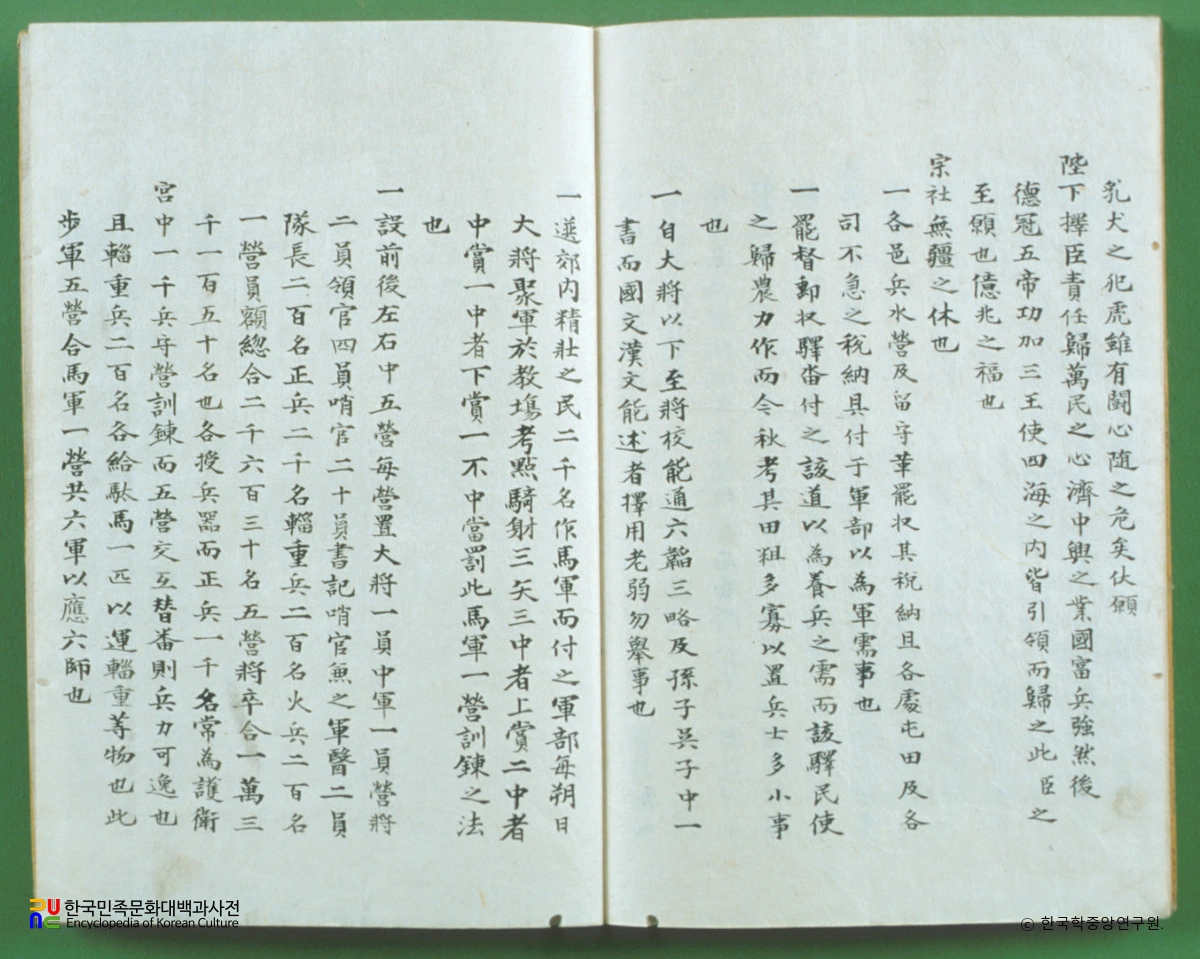 乳犬之犯虎雖有鬪心隨之危矣伏願
陛下擇臣責任歸萬民之心濟中興之業國富兵強然後
德冠五帝功加三王使四海之內皆引領而歸之此臣之
至願也億兆之福也
宗社無疆之休也
一各邑兵水營及留守革罷収其稅納且各處屯田及各
司不急之稅納具付于軍部以為軍需事也
一罷督郵収驛畓付之該道以為養兵之需而該驛民使
之歸農力作而令秋考其田狙多寡以置兵士多小事
也
一自大將以下至將校能通六韜三略及孫子吳子中一
書而國文漢文能述者擇用老弱勿舉事也
一選郊內精壯之民二千名作馬軍而付之軍部每朔日
大將聚軍於教塲考點騎射三矢三中者上賞二中者
中賞一中者下賞一不中當罰此馬軍一營訓鍊之法
也
一設前後左右中五營每營置大將一員中軍一員營將
二員領官四員哨官二十員書記哨官兼之軍醫二員
隊長二百名正兵二千名輜重兵二百名火兵二百名
一營員額總合二千六百三十名五營將卒合一萬三
千一百五十名也各授兵器而正兵一千名常為護衛
宮中一千兵守營訓鍊而五營交互替番則兵力可逸也
且輜重兵二百名各給駄馬一匹以運輜重等物也此
步軍五營合馬軍一營共六軍以應六師也
한국민족문화대백과사전
Encyclopedia of Korean Culture
© 한국학중앙연구원.